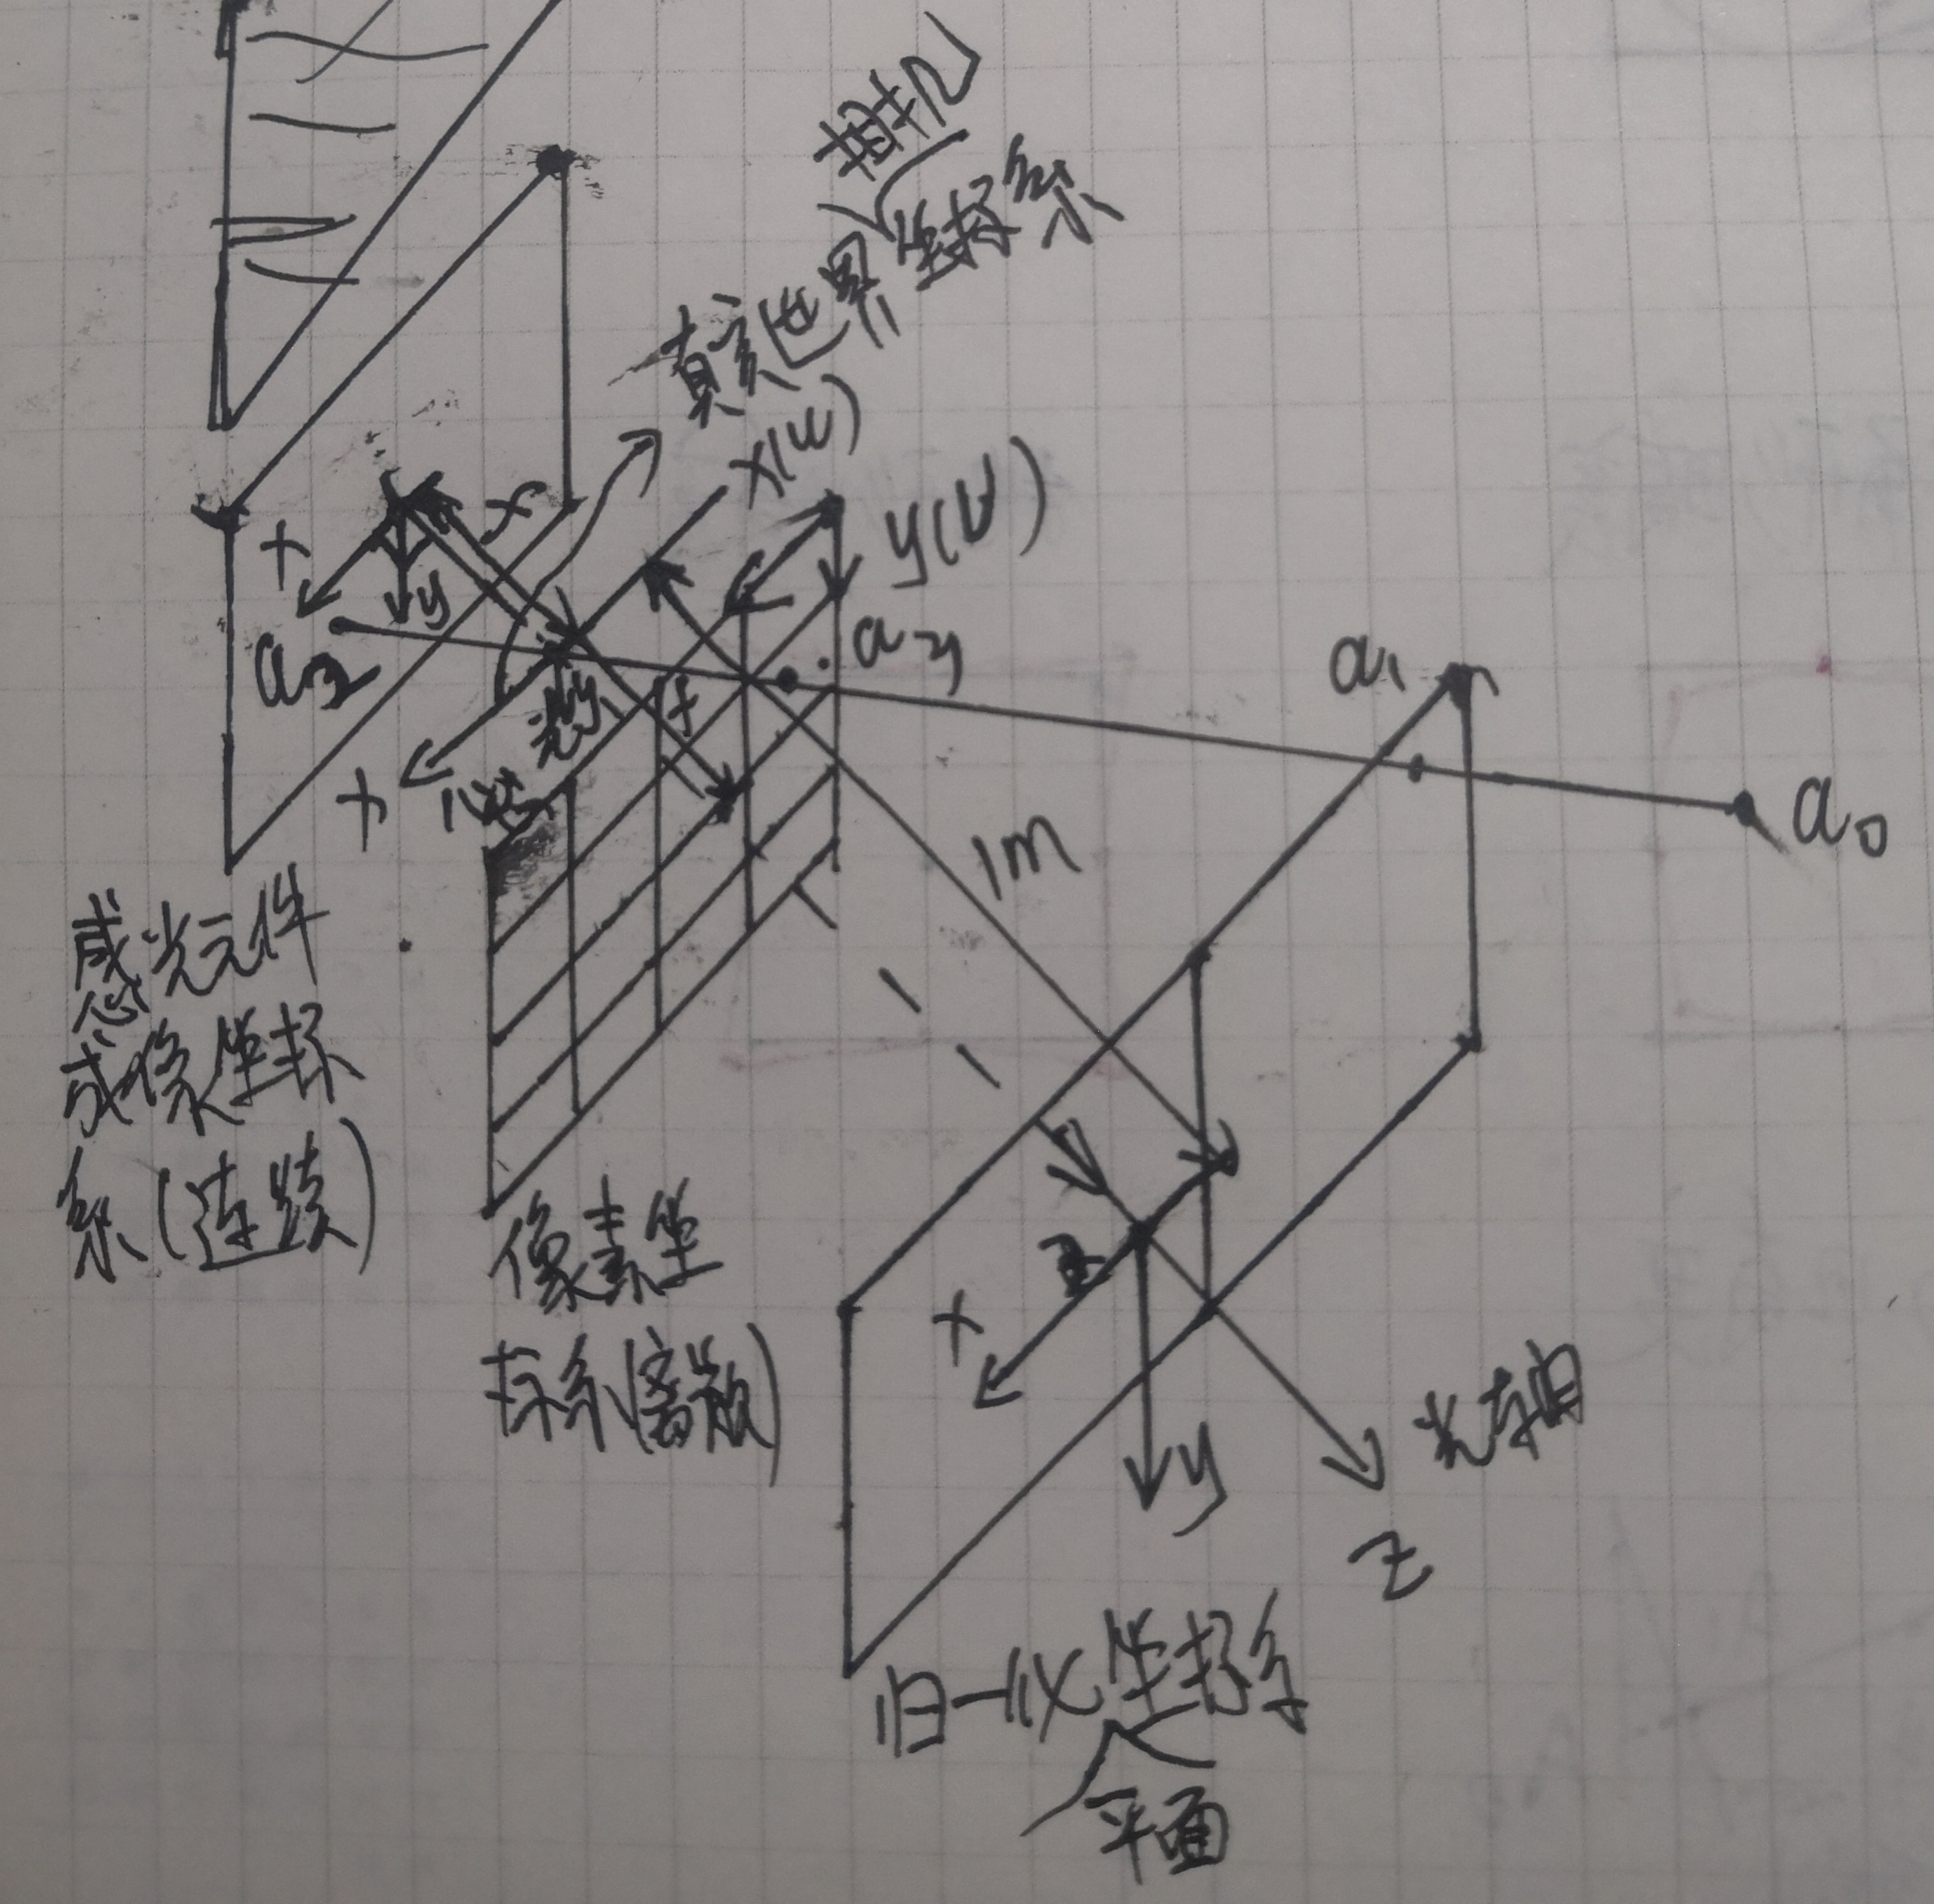 相机
真实世界坐标系
x(u)
y(v)
x
f
x
y
a₂
a₃
a₁
a₀
光心
f
x
1m
感光元件
成像坐标
系(连续)
像素坐
标系(离散)
x
y
光轴
z
归一化坐标系
平面